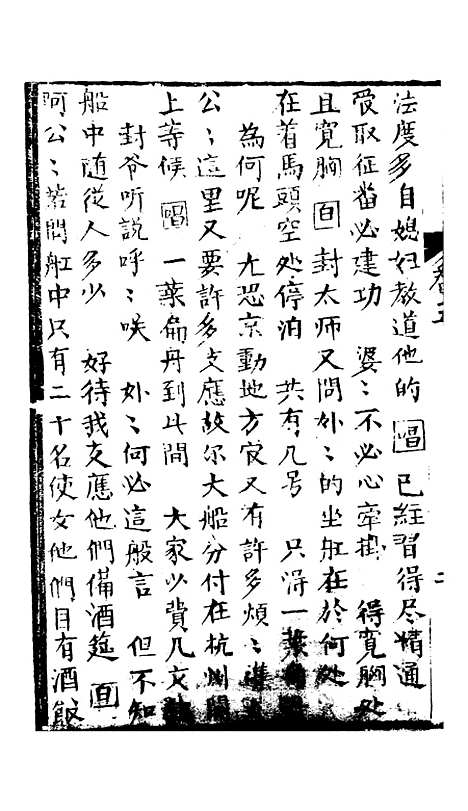 法度多自媳妇教道他的 唱 已经習得尽情通
受取征畨必建功 婆〻不必心牵掛 得寛胸处
且寛胸 白 封太师又問妳〻的坐舡在於何处
在着馬頭空处停泊 共有几号 只得一葉
為何呢 尤恐京動地方官又有許多煩〻
公〻這里又要許多支應故尔大船分付在杭州関
上等候 唱 一葉扁舟到此間 大家少費几文
封爷听説呼〻咲 妳〻何必這般言 但不知
船中随従人多少 好待我支應他們備酒筵 白
阿公〻若問舡中只有二十名使女他們自有酒飯